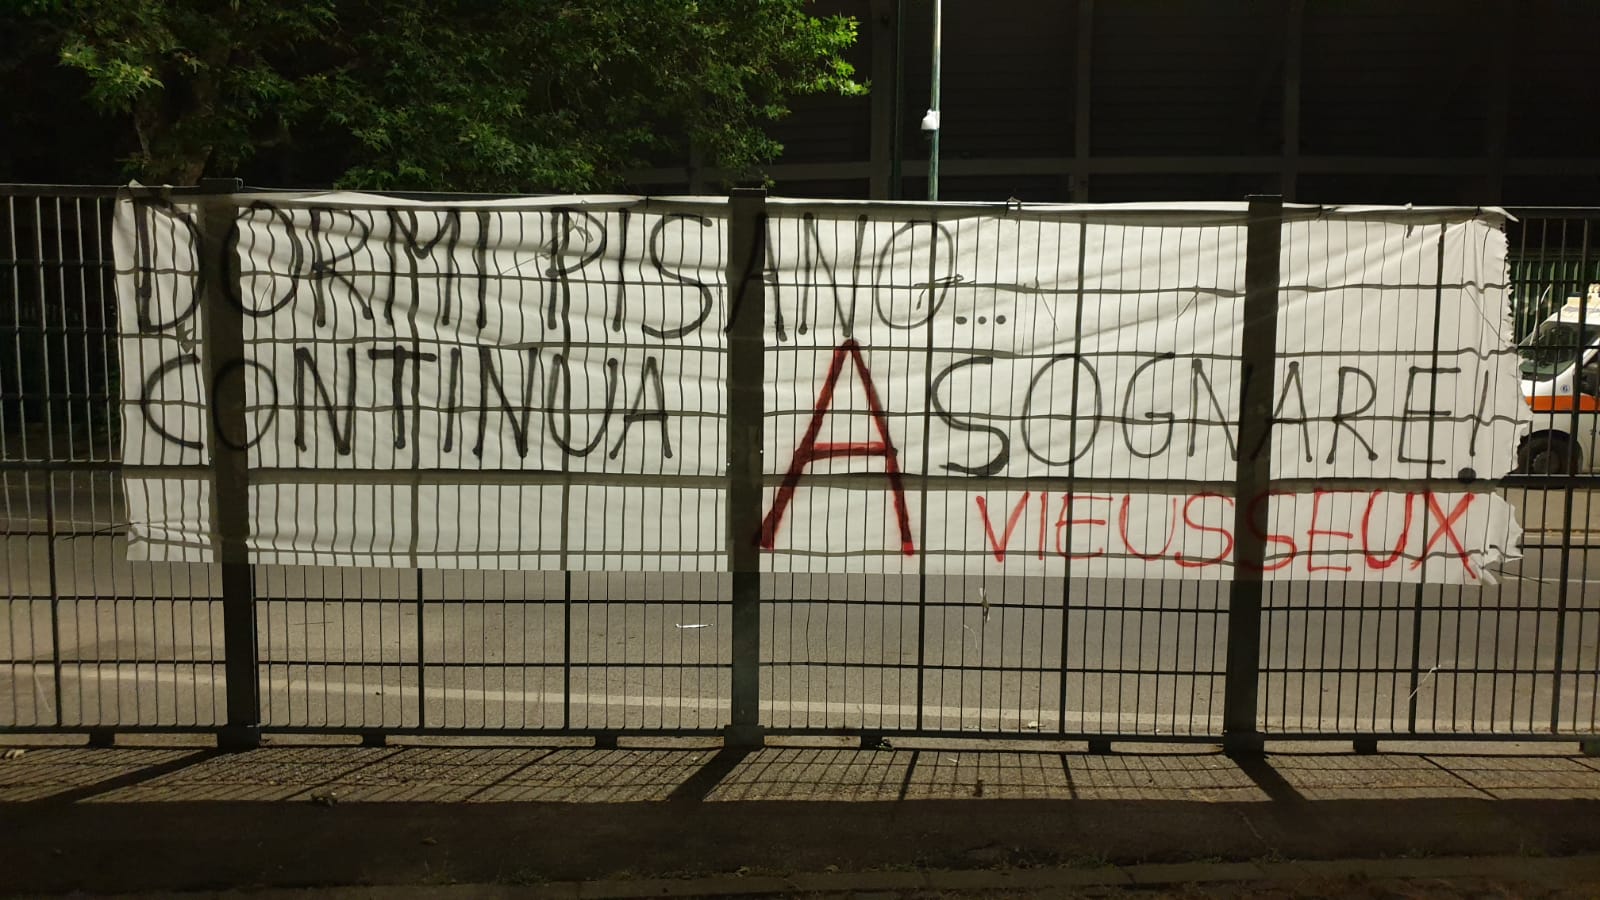 DORMI PISANO...
CONTINUA A SOGNARE!
VIEUSSEUX